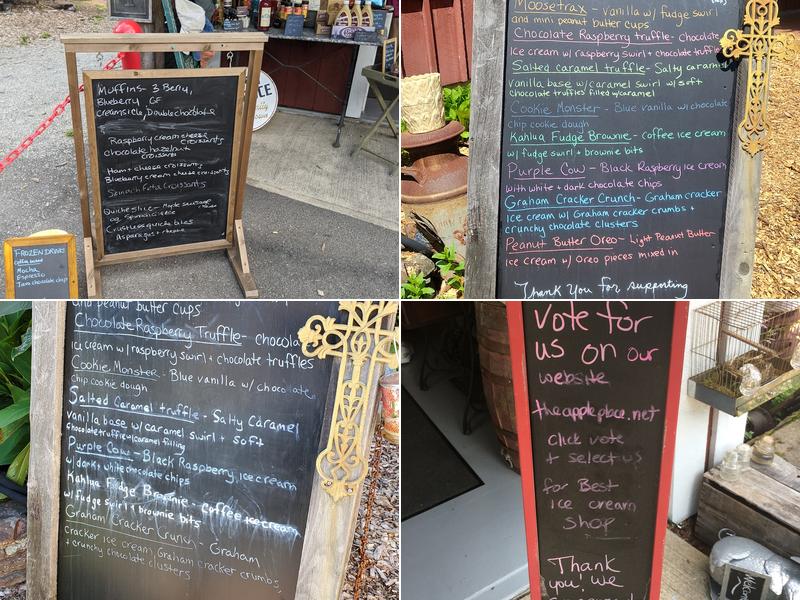 Muffins- 3 Berry,
Blueberry GF
creamsicle, Double chocolate
Raspberry cream cheese
chocolate hazelnut
croissants
Ham + cheese croissants
Blueberry cream cheese croissants
Spinach feta croissants
Quiche slice - Maple sausage
Crustless quiche bites
Asparagus + cheese
FROZEN DRINKS
coffee based
Mocha
Espresso
Java chocolate chip
Moosetrax - vanilla w/ fudge swirl
and mini peanut butter cups
Chocolate Raspberry truffle - chocolate
Ice cream w/ raspberry swirl + chocolate truffles
Salted caramel truffle - Salty caramel
vanilla base w/ caramel swirl w/ soft
chocolate truffles filled w/ caramel
Cookie Monster - Blue vanilla w/ chocolate
chip cookie dough
Kahlua Fudge Brownie - coffee ice cream
w/ fudge swirl + brownie bits
Purple Cow - Black Raspberry ice cream
with white + dark chocolate chips
Graham Cracker Crunch - Graham cracker
Ice cream w/ Graham cracker crumbs +
crunchy chocolate clusters
Peanut Butter Oreo - Light Peanut Butter
ice cream w/ Oreo pieces mixed in
Thank You for supporting
and peanut butter cups
Chocolate Raspberry Truffle - chocola
ice cream w/ raspberry swirl + chocolate truffles
Cookie Monster - Blue vanilla w/ chocolate
chip cookie dough
Salted Caramel truffle - Salty Caramel
vanilla base w/ caramel swirl + soft
chocolate truffle w/ caramel filling
Purple Cow - Black Raspberry ice cream
w/ dark + white chocolate chips
Kahlua Fudge Brownie - coffee ice cream
w/ fudge swirl + brownie bits
Graham Cracker Crunch - Graham
cracker ice cream, Graham cracker crumbs,
+ crunchy chocolate clusters
vote for
us on our
website
theappleplace.net
click vote
+ select us
for Best
ice cream
shop
Thank
you! we